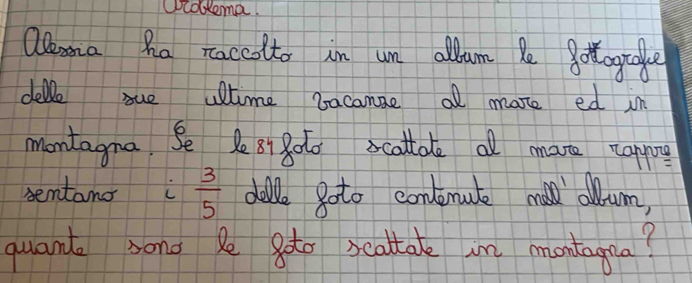 Problema.
Alessia ha raccolto in un album le fotografie
delle sue ultime vacanze al mare ed in
montagna. Se le 81 foto scattate al mare rappre
sentano i 3/5 delle foto contenute nell'album,
quante sono le foto scattate in montagna?